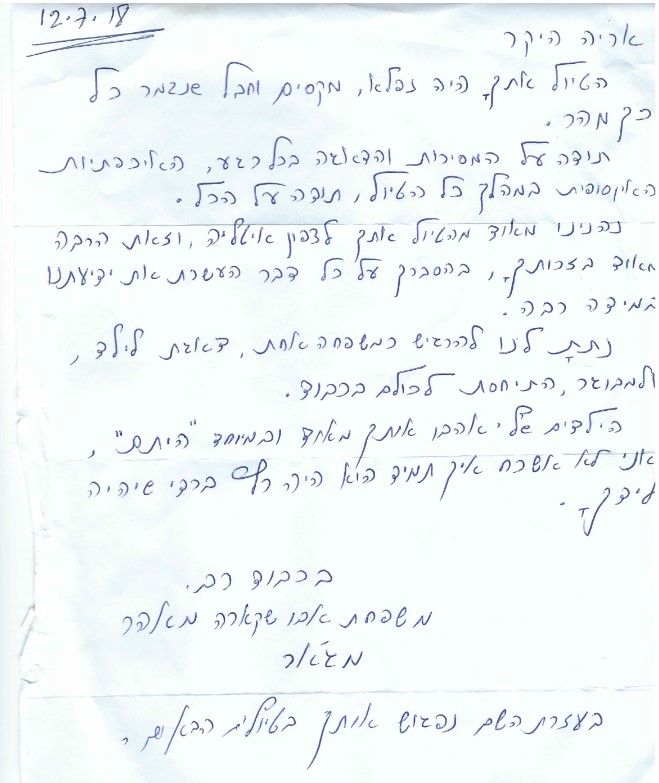 12.7.18
אריה היקר
הטיול אתך היה נפלא, מקסים וחבל שנגמר כל
כך מהר.
תודה על המסירות והדאגה בכל רגע, האיכפתיות
האינסופית במהלך כל הטיול, תודה על הכל.
נהנינו מאוד מהטיול אתך לצפון איטליה, וזאת הרבה
מאוד בזכותך, בהסברך על כל דבר העשרת את ידיעתנו
במידה רבה.
נתת לנו להרגיש כמשפחה אחת, דאגת לילד,
ולמבוגר, התיחסת לכולם בכבוד.
הילדים שלי אהבו אותך מאוד ובמיוחד "היתם",
אני לא אשכח איך תמיד הוא היה רץ בכדי שיהיה
לידך.
בכבוד רב.
משפחת אבו שקארה מאהר
מג'אר
בעזרת השם נפגוש אותך בטיולים הבאים,